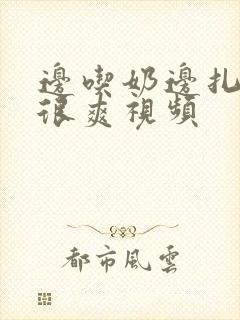 邊喫奶邊扎
很爽視頻
都市風雲